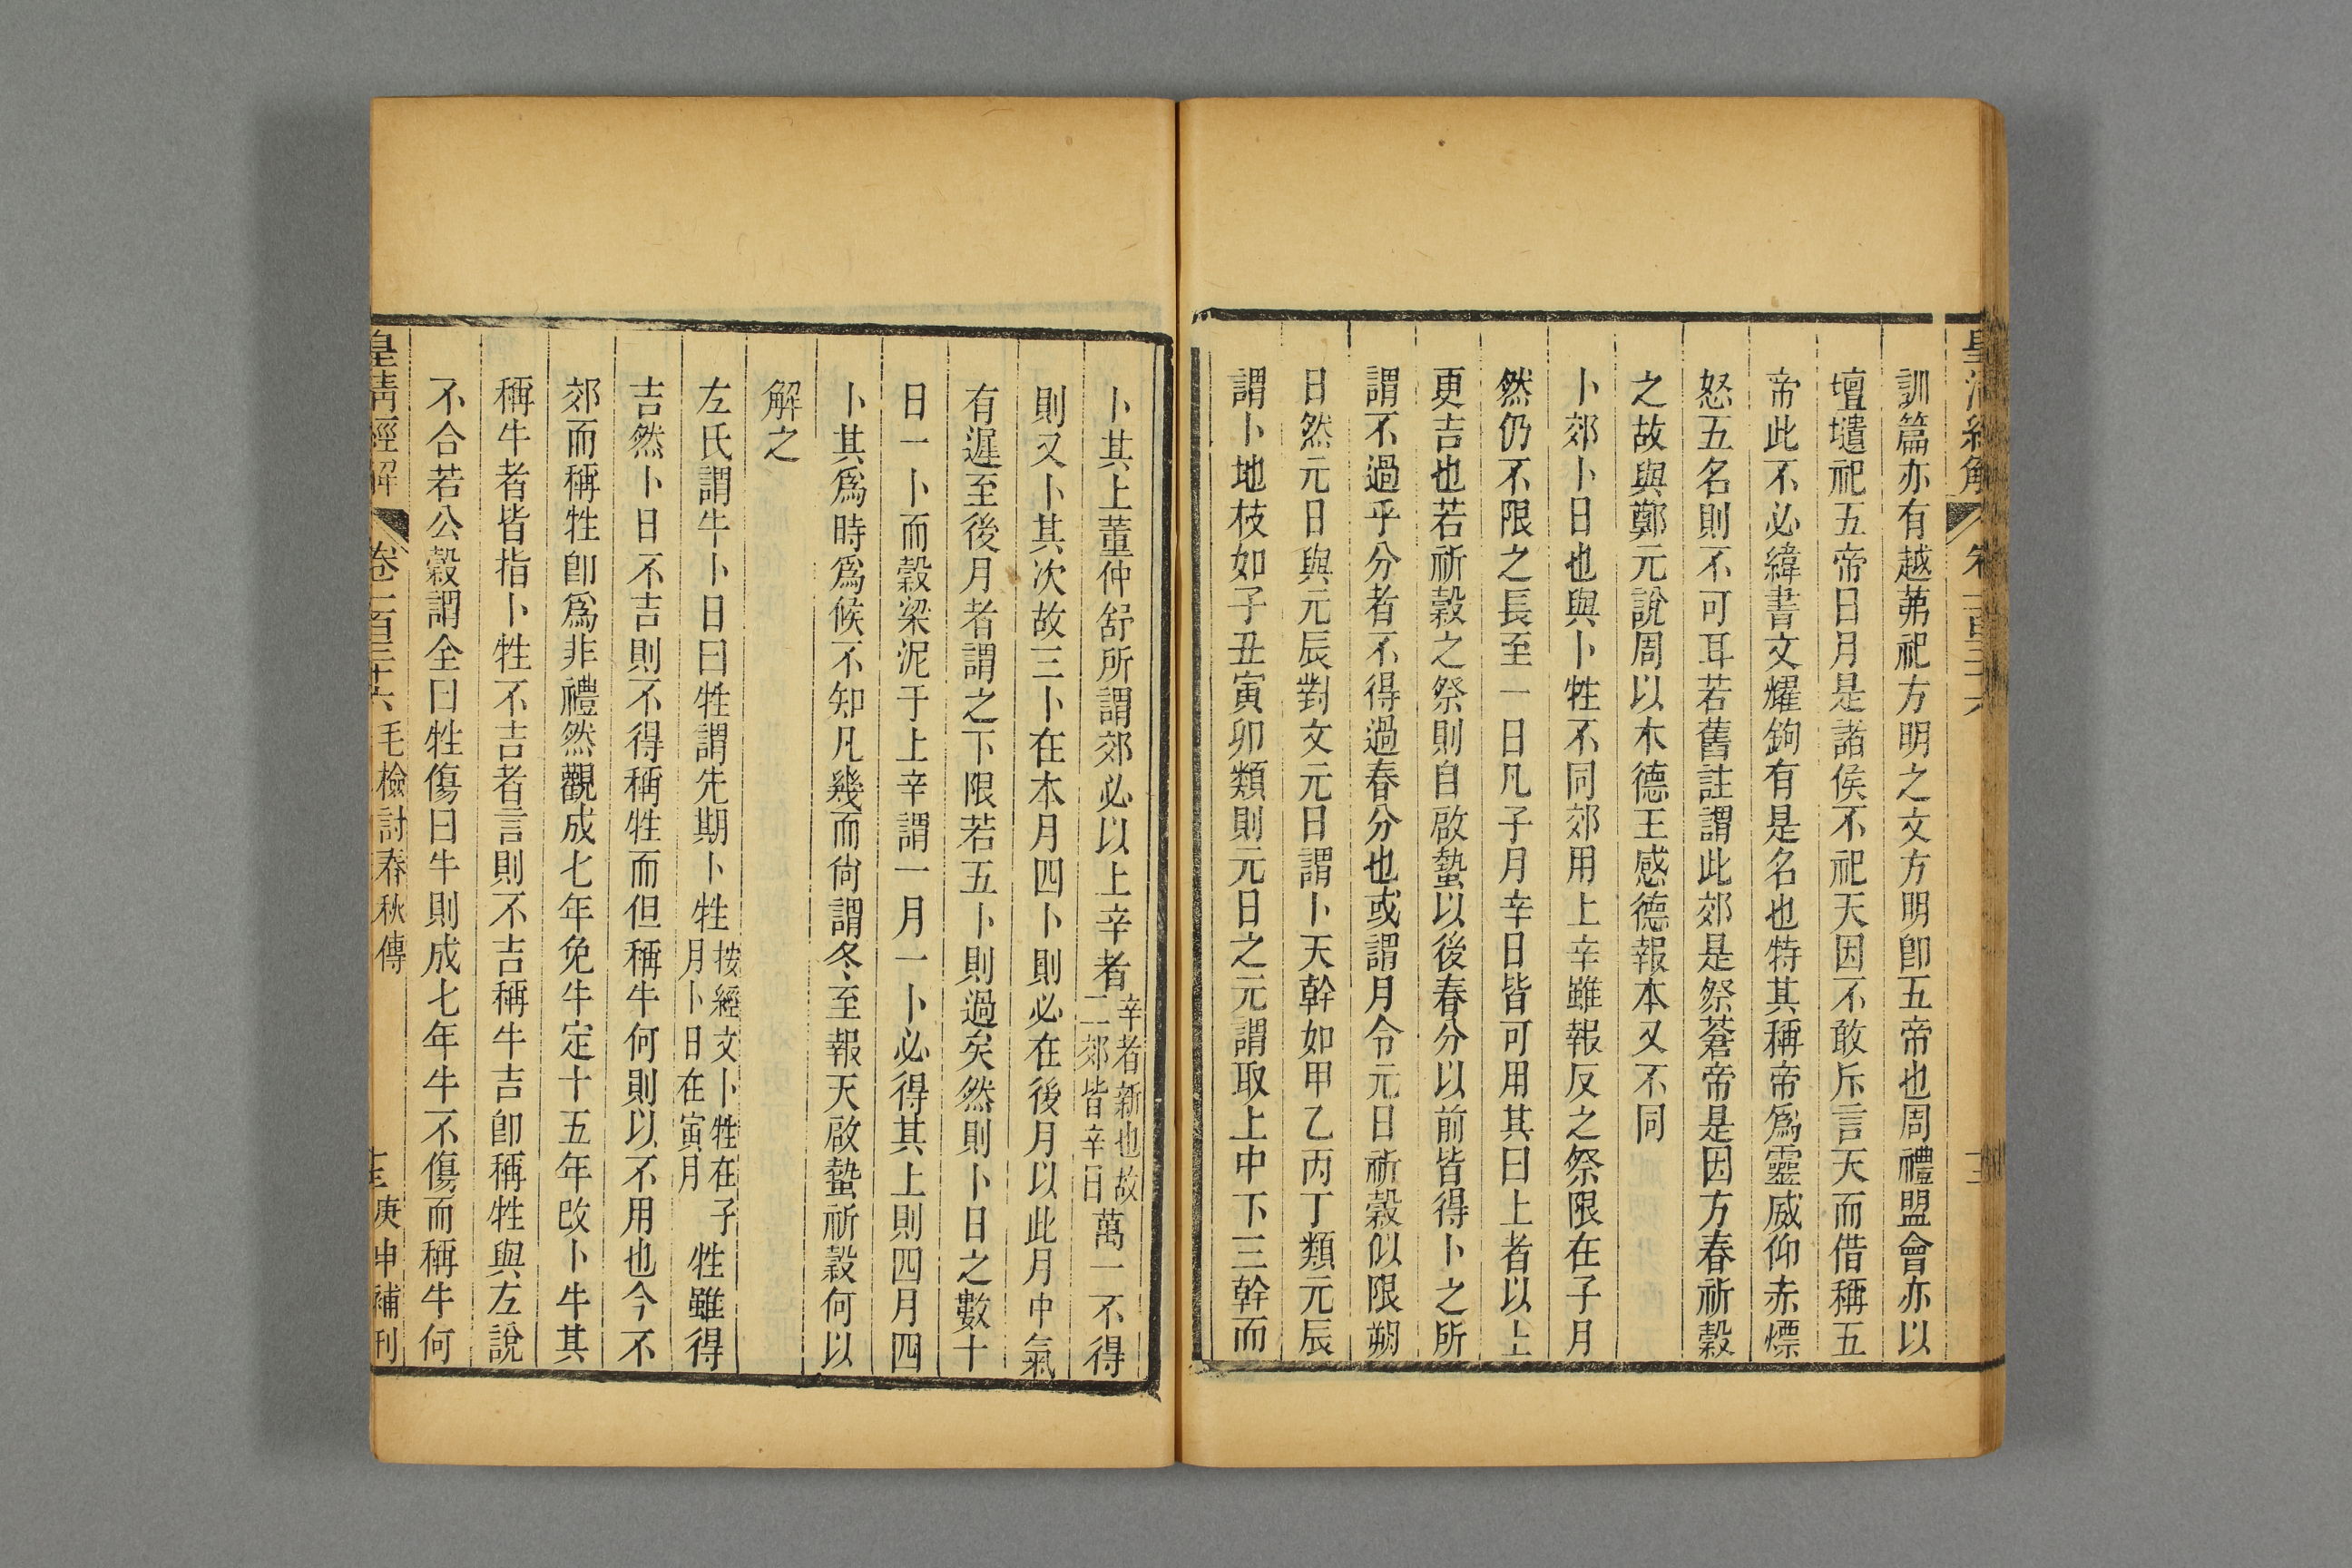 訓篇亦有越茀祀方明之文方明卽五帝也周禮盟會亦以
壇壝祀五帝日月是諸侯不祀天因不敢斥言天而借稱五
帝此不必緯書文耀鉤有是名也特其稱帝爲靈威仰赤熛
怒五名則不可耳若舊註謂此郊是祭蒼帝是因方春祈穀
之故與鄭元說周以木德王感德報本又不同
卜郊卜日也與卜牲不同郊用上辛雖報反之祭限在子月
然仍不限之長至一日凡子月辛日皆可用其曰上者以上
更吉也若祈穀之祭則自啟蟄以後春分以前皆得卜之所
謂不過乎分者不得過春分也或謂月令元日祈穀似限朔
日然元日與元辰對文元日謂卜天幹如甲乙丙丁類元辰
謂卜地枝如子丑寅卯類則元日之元謂取上中下三幹而
卜其上董仲舒所謂郊必以上辛者辛者新也故二郊皆辛日萬一不得
則又卜其次故三卜在本月四卜則必在後月以此月中氣
有遲至後月者謂之下限若五卜則過矣然則卜日之數十
日一卜而穀梁泥于上辛謂一月一卜必得其上則四月四
卜其爲時爲候不知凡幾而尙謂冬至報天啟蟄祈穀何以
解之
左氏謂牛卜日曰牲謂先期卜牲按經文卜牲在子月卜日在寅月牲雖得
吉然卜日不吉則不得稱牲而但稱牛何則以不用也今不
郊而稱牲卽爲非禮然觀成七年免牛定十五年改卜牛其
稱牛者皆指卜牲不吉者言則不吉稱牛吉卽稱牲與左說
不合若公穀謂全曰牲傷曰牛則成七年牛不傷而稱牛何
皇清經解 卷一百三十六 毛檢討春秋傳 庚申補刊